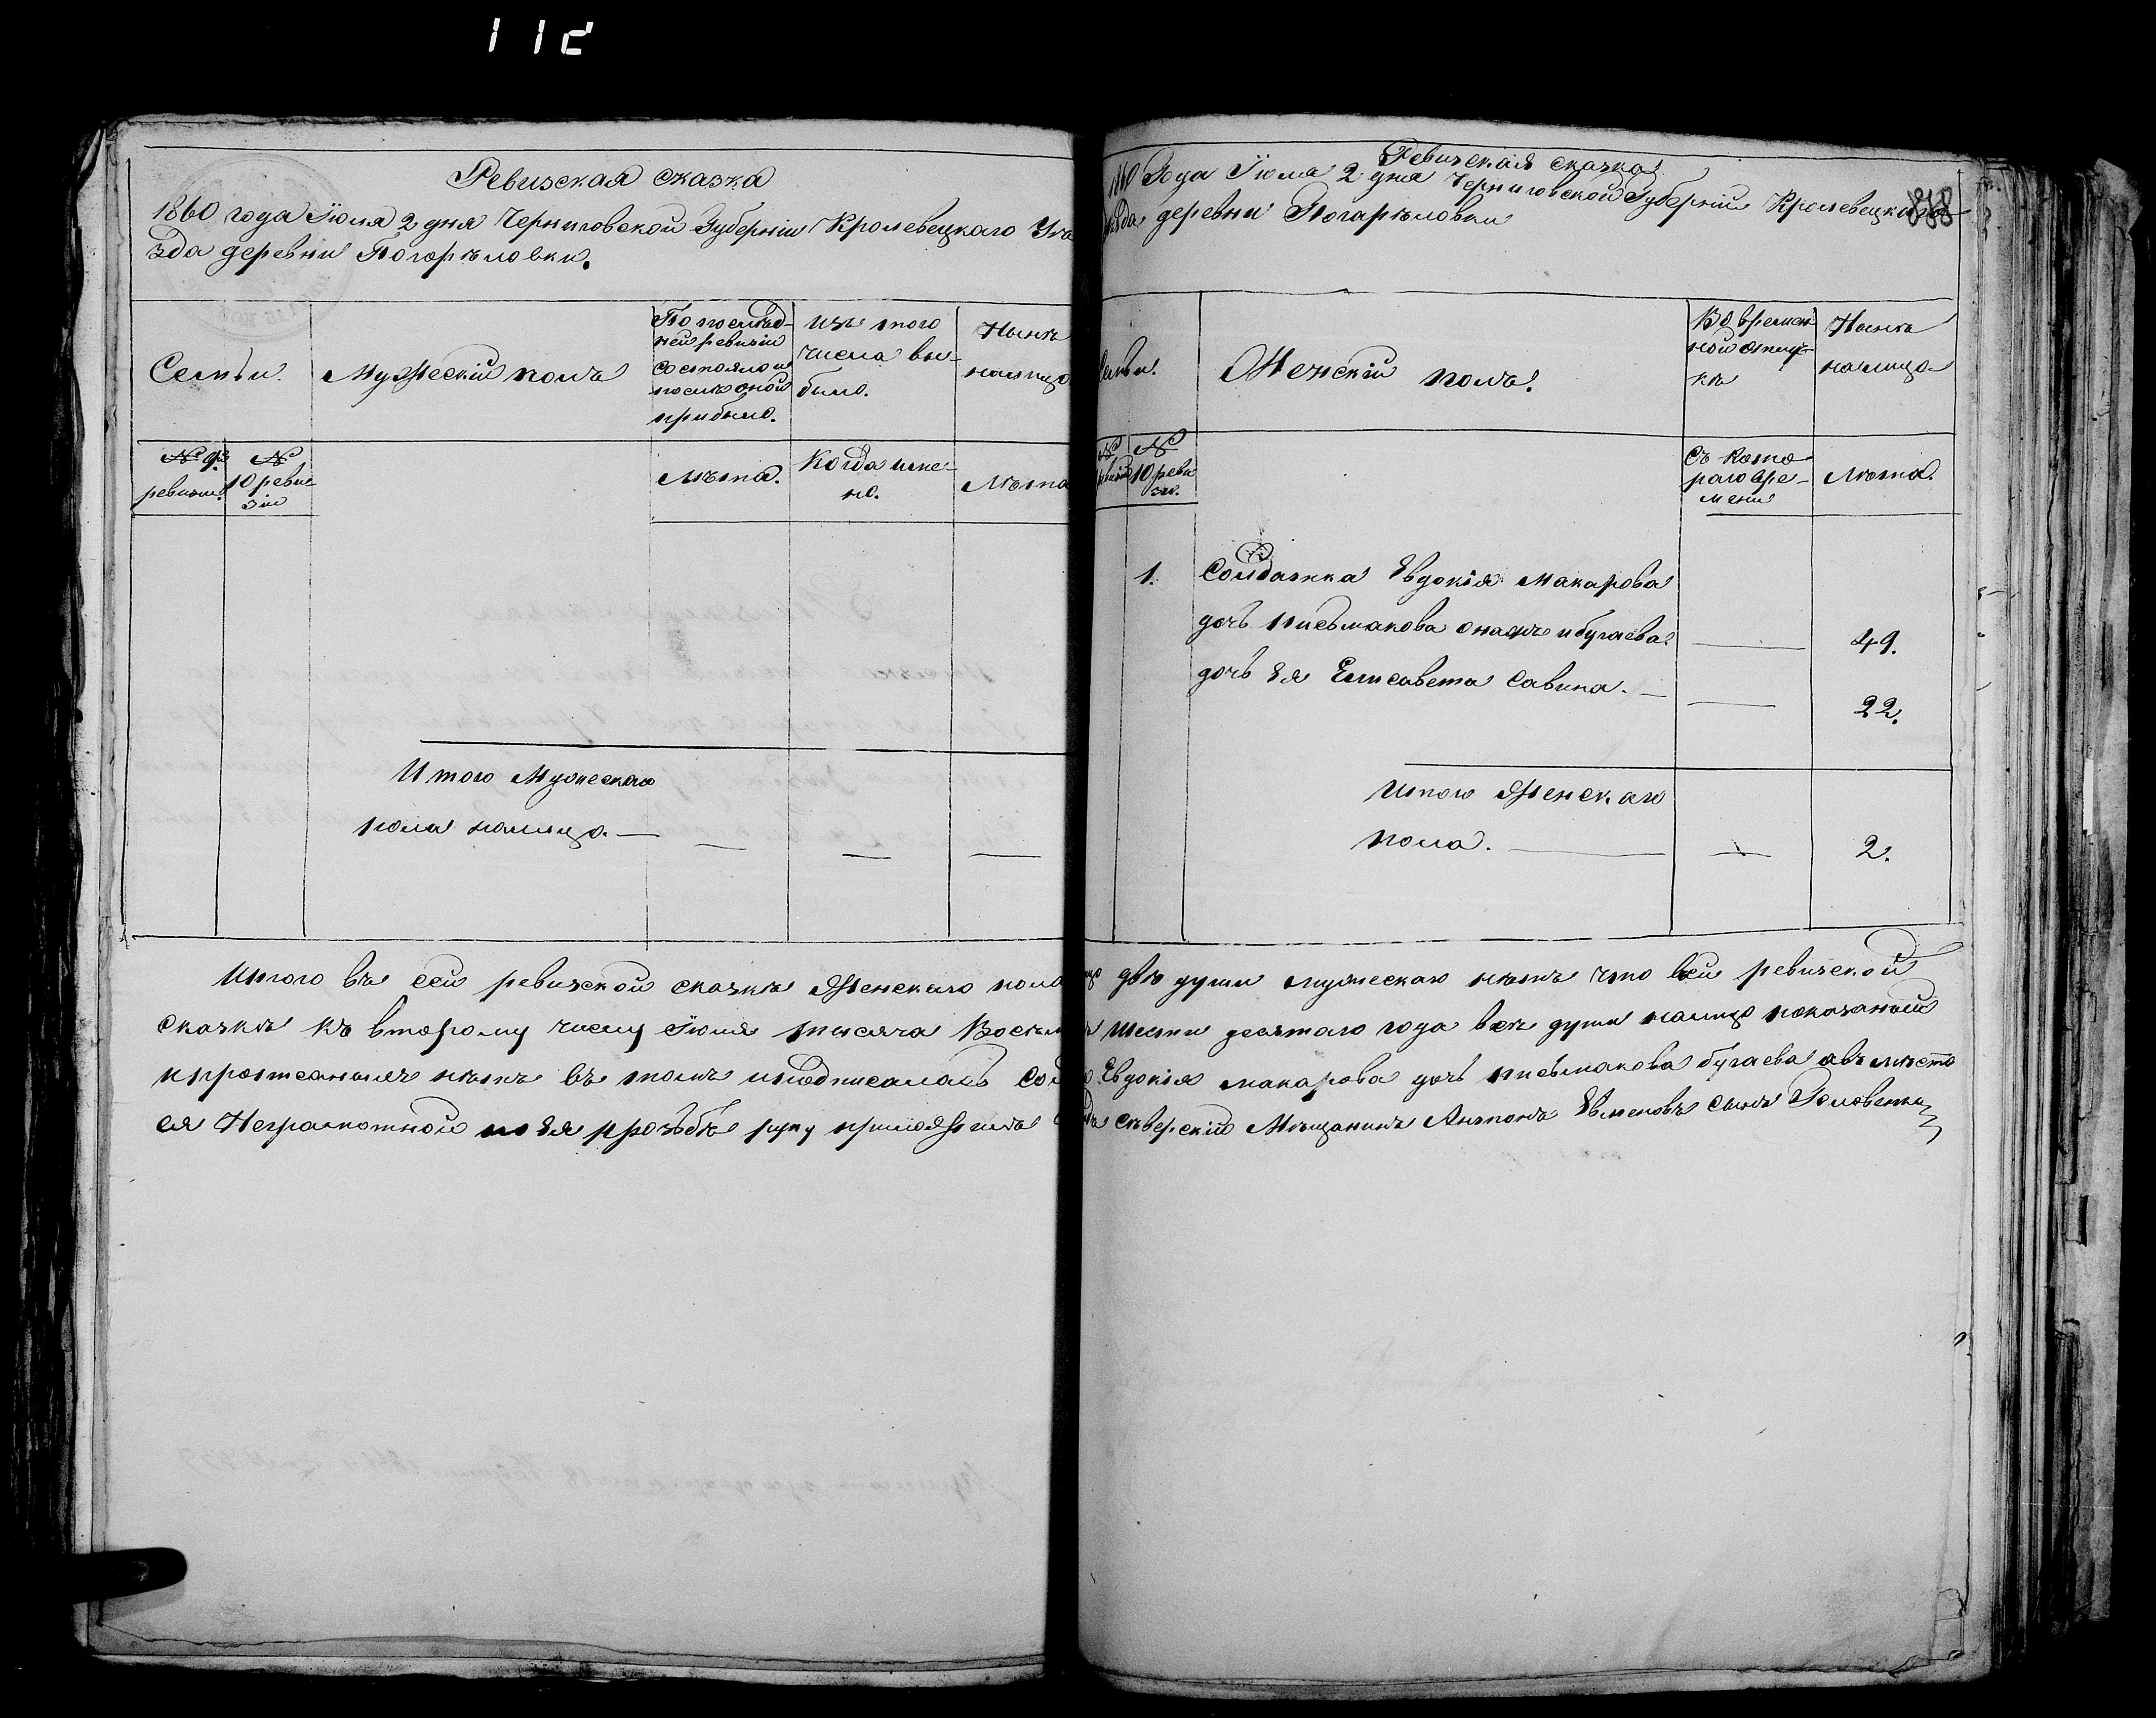 112
Ревизская сказка
1860 года Іюля 2 дня Черниговской Губерніи Кролевецкаго Уѣ
зда деревни Погорѣловки.
Семьи.
Мужескій полъ
По послѣд-
ней ревизіи
состояло и
послѣ оной
прибыло.
Изъ того
числа вы-
было.
Нынѣ
налицо
№ 9й
ревизіи.
№
10 реви
зіи
Лѣта.
Когда име-
но.
Лѣта
Итого Мужескаго
пола налицо. —
Ревизская сказка
1860 Года Іюля 2 дня Черниговской Губерніи Кролевецкаго
зда деревни Погарѣловки
838
Женскій полъ.
Во времен-
ной отлуч-
кѣ
Нынѣ
налицо
№
№
10 реви
зіи.
Съ кото-
раго вре-
мени
Лѣта.
1. Солдатка Евдокія Макарова
дочь письмакова онажъ и бугаева. — 49.
дочь Ея Елисавета Савина. — — 22.
Итого Женскаго
пола. — — 2.
Итого въ сей ревизской сказкѣ Женскаго пола
двѣ души мужескаго нѣтъ что всей ревизской
сказкѣ къ второму числу Іюля тысяча Восѣм
шести десятаго года всѣ души налицо показаный
ипрописаныхъ нѣтъ въ томъ иподписалась Сол
Евдокія макарова дочь письмакова бугаева авъ мѣсто
ея Неграмотной по Ея прозьбѣ руку приложилъ
сѣверскій Мѣщанинъ Антонъ Евменовъ сынъ Головенко